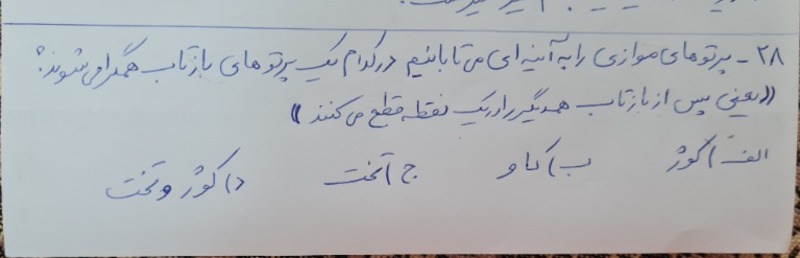 ۲۸ - پرتوهای موازی را به آینه‌ای می‌تابانیم در کدام یک پرتوهای بازتاب همگرا می‌شوند؟
((یعنی پس از بازتاب همدیگر را در یک نقطه قطع می‌کنند))
الف) کوژ ب) کاو ج) تخت د) کوژ و تخت